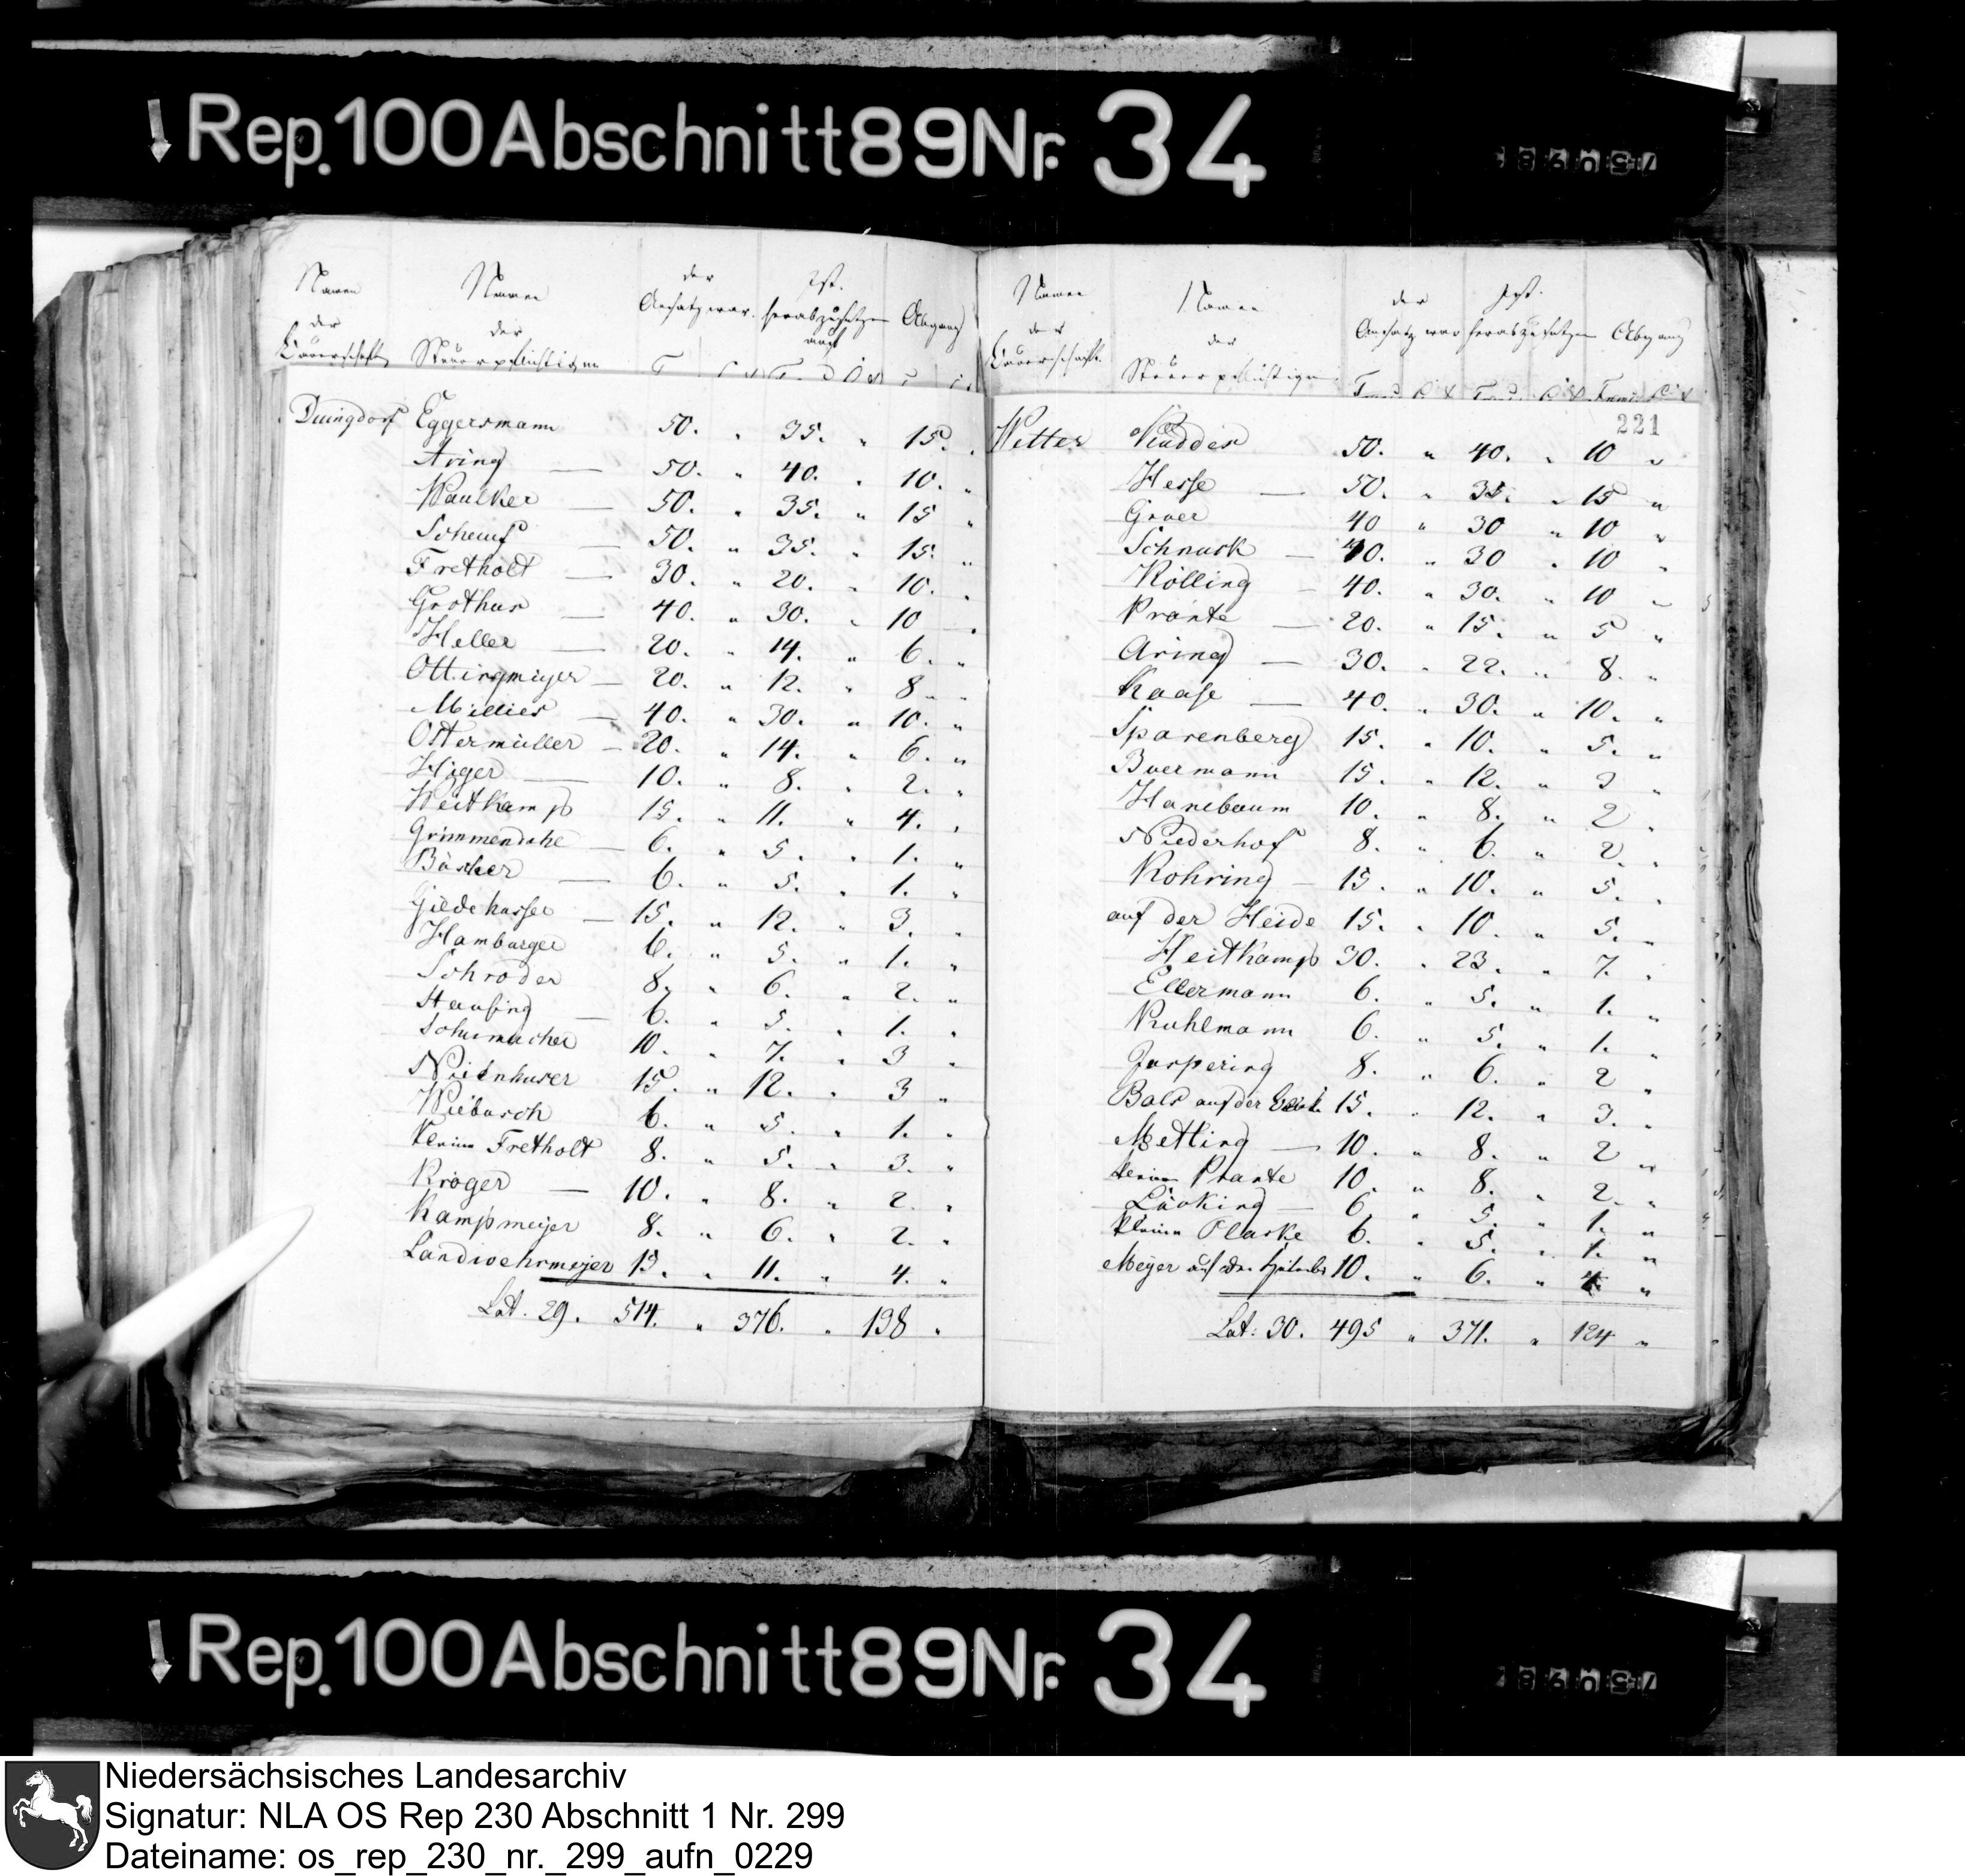 Rep. 100 Abschnitt 89 Nr. 34
Namen der Bauerschaft Namen der Steuerpflichtigen der Ansatz war. Ist herabzusetzen auf Abgang
Duingdorf Eggersmann 50. " 35. " 15. "
Aring — 50. " 40. " 10. "
Waulker — 50. " 35. " 15 "
Scheuf — 50. " 35. " 15. "
Fretholt — 30. " 20. " 10. "
Grothus — 40. " 30. " 10 "
Heller — 20. " 14. " 6. "
Ottingmeyer — 20. " 12. " 8 "
Millies — 40. " 30. " 10. "
Ostermüller — 20. " 14. " 6. "
Höger — 10. " 8. " 2. "
Weitkamp 15. " 11. " 4. "
Grimmendahe — 6. " 5. " 1. "
Büscher — 6. " 5. " 1. "
Gildehasser — 15. " 12. " 3. "
Hamburger 6. " 5. " 1. "
Schroder 8. " 6. " 2. "
Hensing — 6. " 5. " 1. "
Schumacher 10. " 7. " 3 "
Nienhuser 15. " 12. " 3 "
Wiebusch 6. " 5. " 1. "
kleine Fretholt 8. " 5. " 3. "
Kröger — 10. " 8. " 2. "
Kampmeyer 8. " 6. " 2. "
Landwehrmeyer 15. " 11. " 4. "
Lat. 29. 514. " 376. " 138 "
Namen der Bauerschaft. Namen der Steuerpflichtigen der Ansatz war Ist herabzusetzen Abgang
221
Wetter Nüdder 50. " 40. " 10 "
Hesse — 50. " 35. " 15 "
Grver 40 " 30 " 10 "
Schnuck — 40. " 30 " 10 "
Kölling — 40. " 30. " 10 "
Prante — 20. " 15. " 5 "
Aring — 30. " 22. " 8. "
Kaase — 40. " 30. " 10. "
Sparenberg 15. " 10. " 5. "
Buermann 15. " 12. " 3 "
Hanebaum 10. " 8. " 2 "
Niederhof 8. " 6. " 2. "
Rohring — 15. " 10. " 5. "
auf der Heide 15. " 10. " 5. "
Heitkamp 30. " 23. " 7. "
Ellermann 6. " 5. " 1. "
Kuhlmann 6. " 5. " 1. "
Jaspering 8. " 6. " 2 "
Bals auf der 15. " 12. " 3. "
Metting — 10. " 8. " 2 "
kleine Prante 10. " 8. " 2. "
Lüoking — 6. " 5. " 1. "
kleine Plaske 6. " 5. " 1. "
Meyer auf der 10. " 6. " 4. "
Lat: 30. 495 " 371. " 124 "
Rep. 100 Abschnitt 89 Nr. 34
Niedersächsisches Landesarchiv
Signatur: NLA OS Rep 230 Abschnitt 1 Nr. 299
Dateiname: os_rep_230_nr._299_aufn_0229